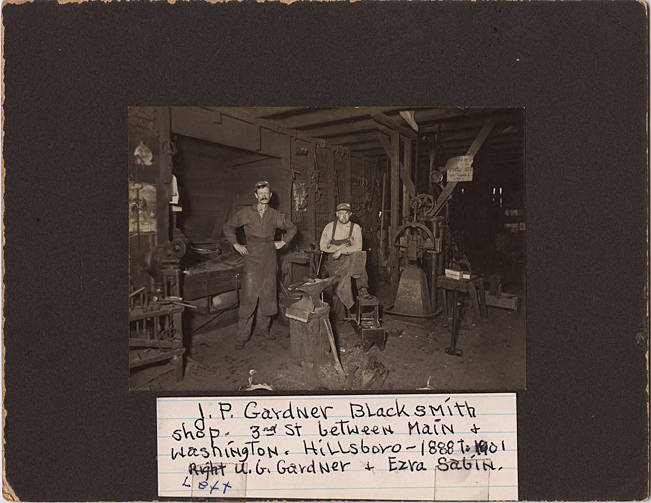 J. P. Gardner Blacksmith
shop. 3rd St between Main +
Washington. Hillsboro - 1888 to 1901
Right U. G. Gardner + Ezra Sabin.
Left